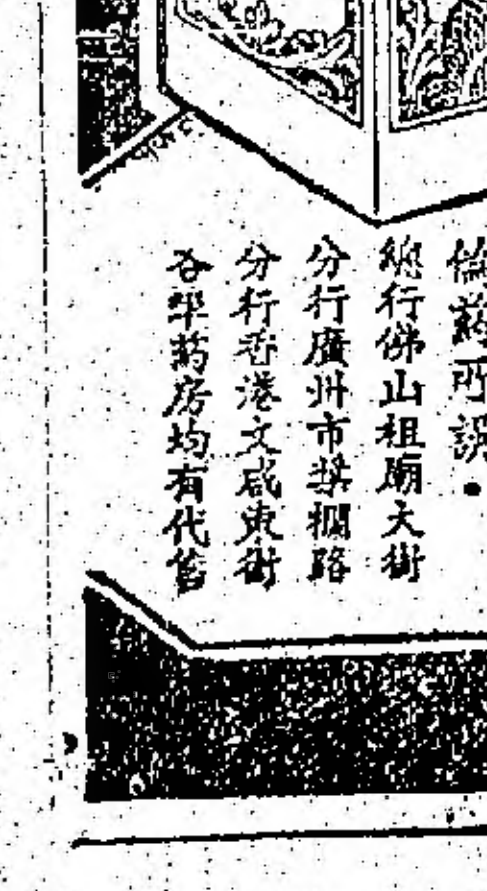 偽葯所誤·
總行佛山祖廟大街
分行廣州市槳欄路
分行香港文咸東街
各埠葯房均有代售